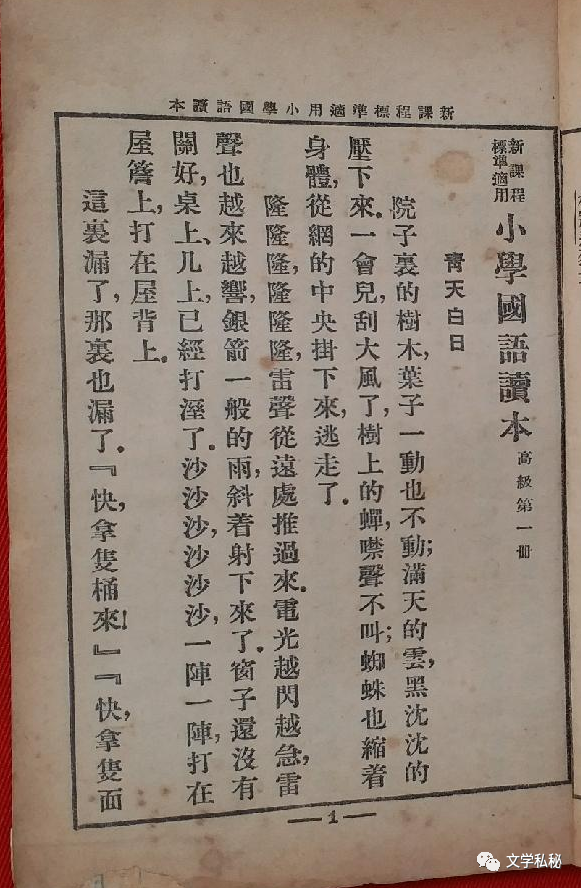 新課程標準適用小學國語讀本
新課程
標準適用
小學國語讀本
高級第一冊
青天白日
院子裏的樹木,葉子一動也不動;滿天的雲,黑沈沈的
壓下來.一會兒,刮大風了,樹上的蟬,噤聲不叫;蜘蛛也縮着
身體,從網的中央掛下來,逃走了.
隆隆隆,隆隆隆,雷聲從遠處推過來.電光越閃越急,雷
聲也越來越響,銀箭一般的雨,斜着射下來了.窗子還沒有
關好,桌上、几上,已經打溼了.沙沙沙,沙沙沙,一陣一陣,打在
屋簷上,打在屋背上.
這裏漏了,那裏也漏了.『快,拿隻桶來!』『快,拿隻面
1
文学私秘